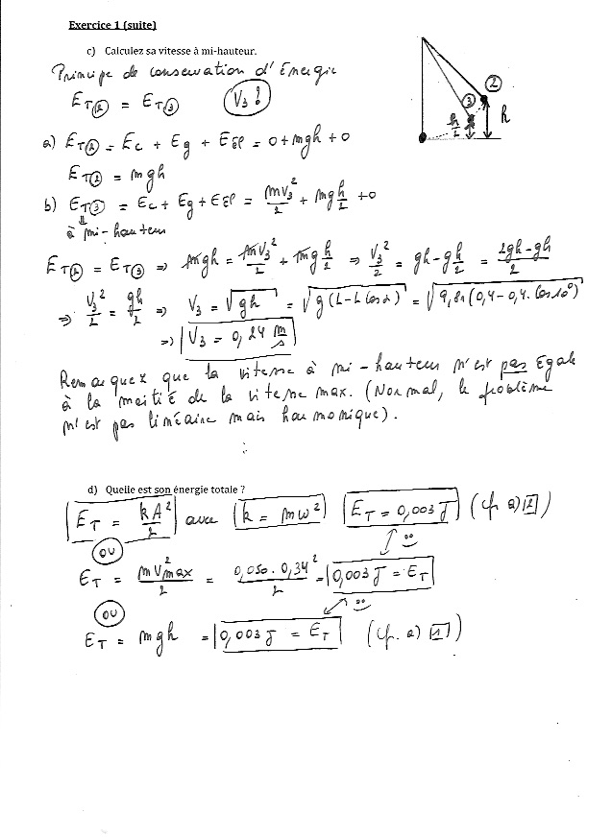 Exercice 1 (suite)
c) Calculez sa vitesse à mi-hauteur.
Principe de conservation d'Énergie
E_T② = E_T③ V₃ ?
② ③ h/2 h
a) E_T② = Ec + Eg + E_Ep = 0 + mgh + 0
E_T② = mgh
b) E_T③ = Ec + Eg + E_Ep = mV₃²/2 + mg h/2 + 0
à mi-hauteur
E_T② = E_T③ => mgh = mV₃²/2 + mg h/2 => V₃²/2 = gh - g h/2 = 2gh - gh/2
=> V₃²/2 = gh/2 => V₃ = √gh = √g(L-L cos α) = √9,81(0,4-0,4.cos10°)
=> V₃ = 0,24 m/s
Remarquez que la vitesse à mi-hauteur n'est pas égale
à la moitié de la vitesse max. (Normal, le problème
n'est pas linéaire mais harmonique).
d) Quelle est son énergie totale ?
E_T = kA²/2 avec k = mω² E_T = 0,003 J (cf. a) 2)
ou
E_T = mV²max/2 = 0,050.0,34²/2 = 0,003 J = E_T
ou
E_T = mgh = 0,003 J = E_T (cf. a) 1)